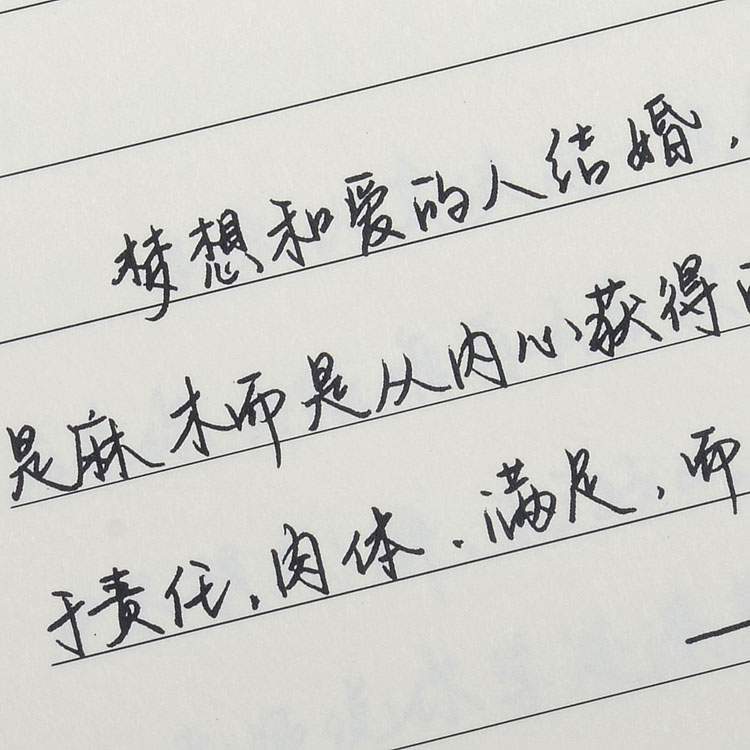 梦想和爱的人结婚，
是麻木而是从内心获得
于责任，肉体．满足，而